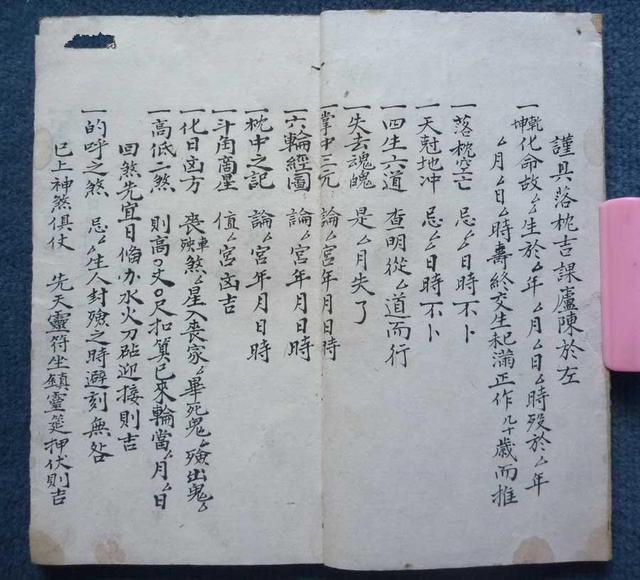 謹具落枕吉課廬陳於左
一乾坤化命故厶厶生於厶年厶月厶日厶時殁於厶年
厶月厶日厶時壽終交生杞滿正作几十歲而推
一落枕空亡 忌厶日時不卜
一天尅地冲 忌厶日時不卜
一四生六道 查明從厶道而行
一失去魂魄 是厶月失了
一掌中三元 論厶宮年月日時
一六輪經圖 論厶宮年月日時
一枕中之記 論厶宮年月日時
一斗角商星 值厶宮凶吉
一化日凶方 喪車殃煞厶星入喪家厶畢死鬼厶殮出鬼厶
一高低二煞 則高〇丈〇尺扣算已來輪當厶月厶日
回煞先宜日俻办水火刀砧迎接則吉
一的呼之煞 忌厶生人封殮之時避刻無咎
已上神煞俱仗 先天靈符坐鎮靈筵押伏則吉